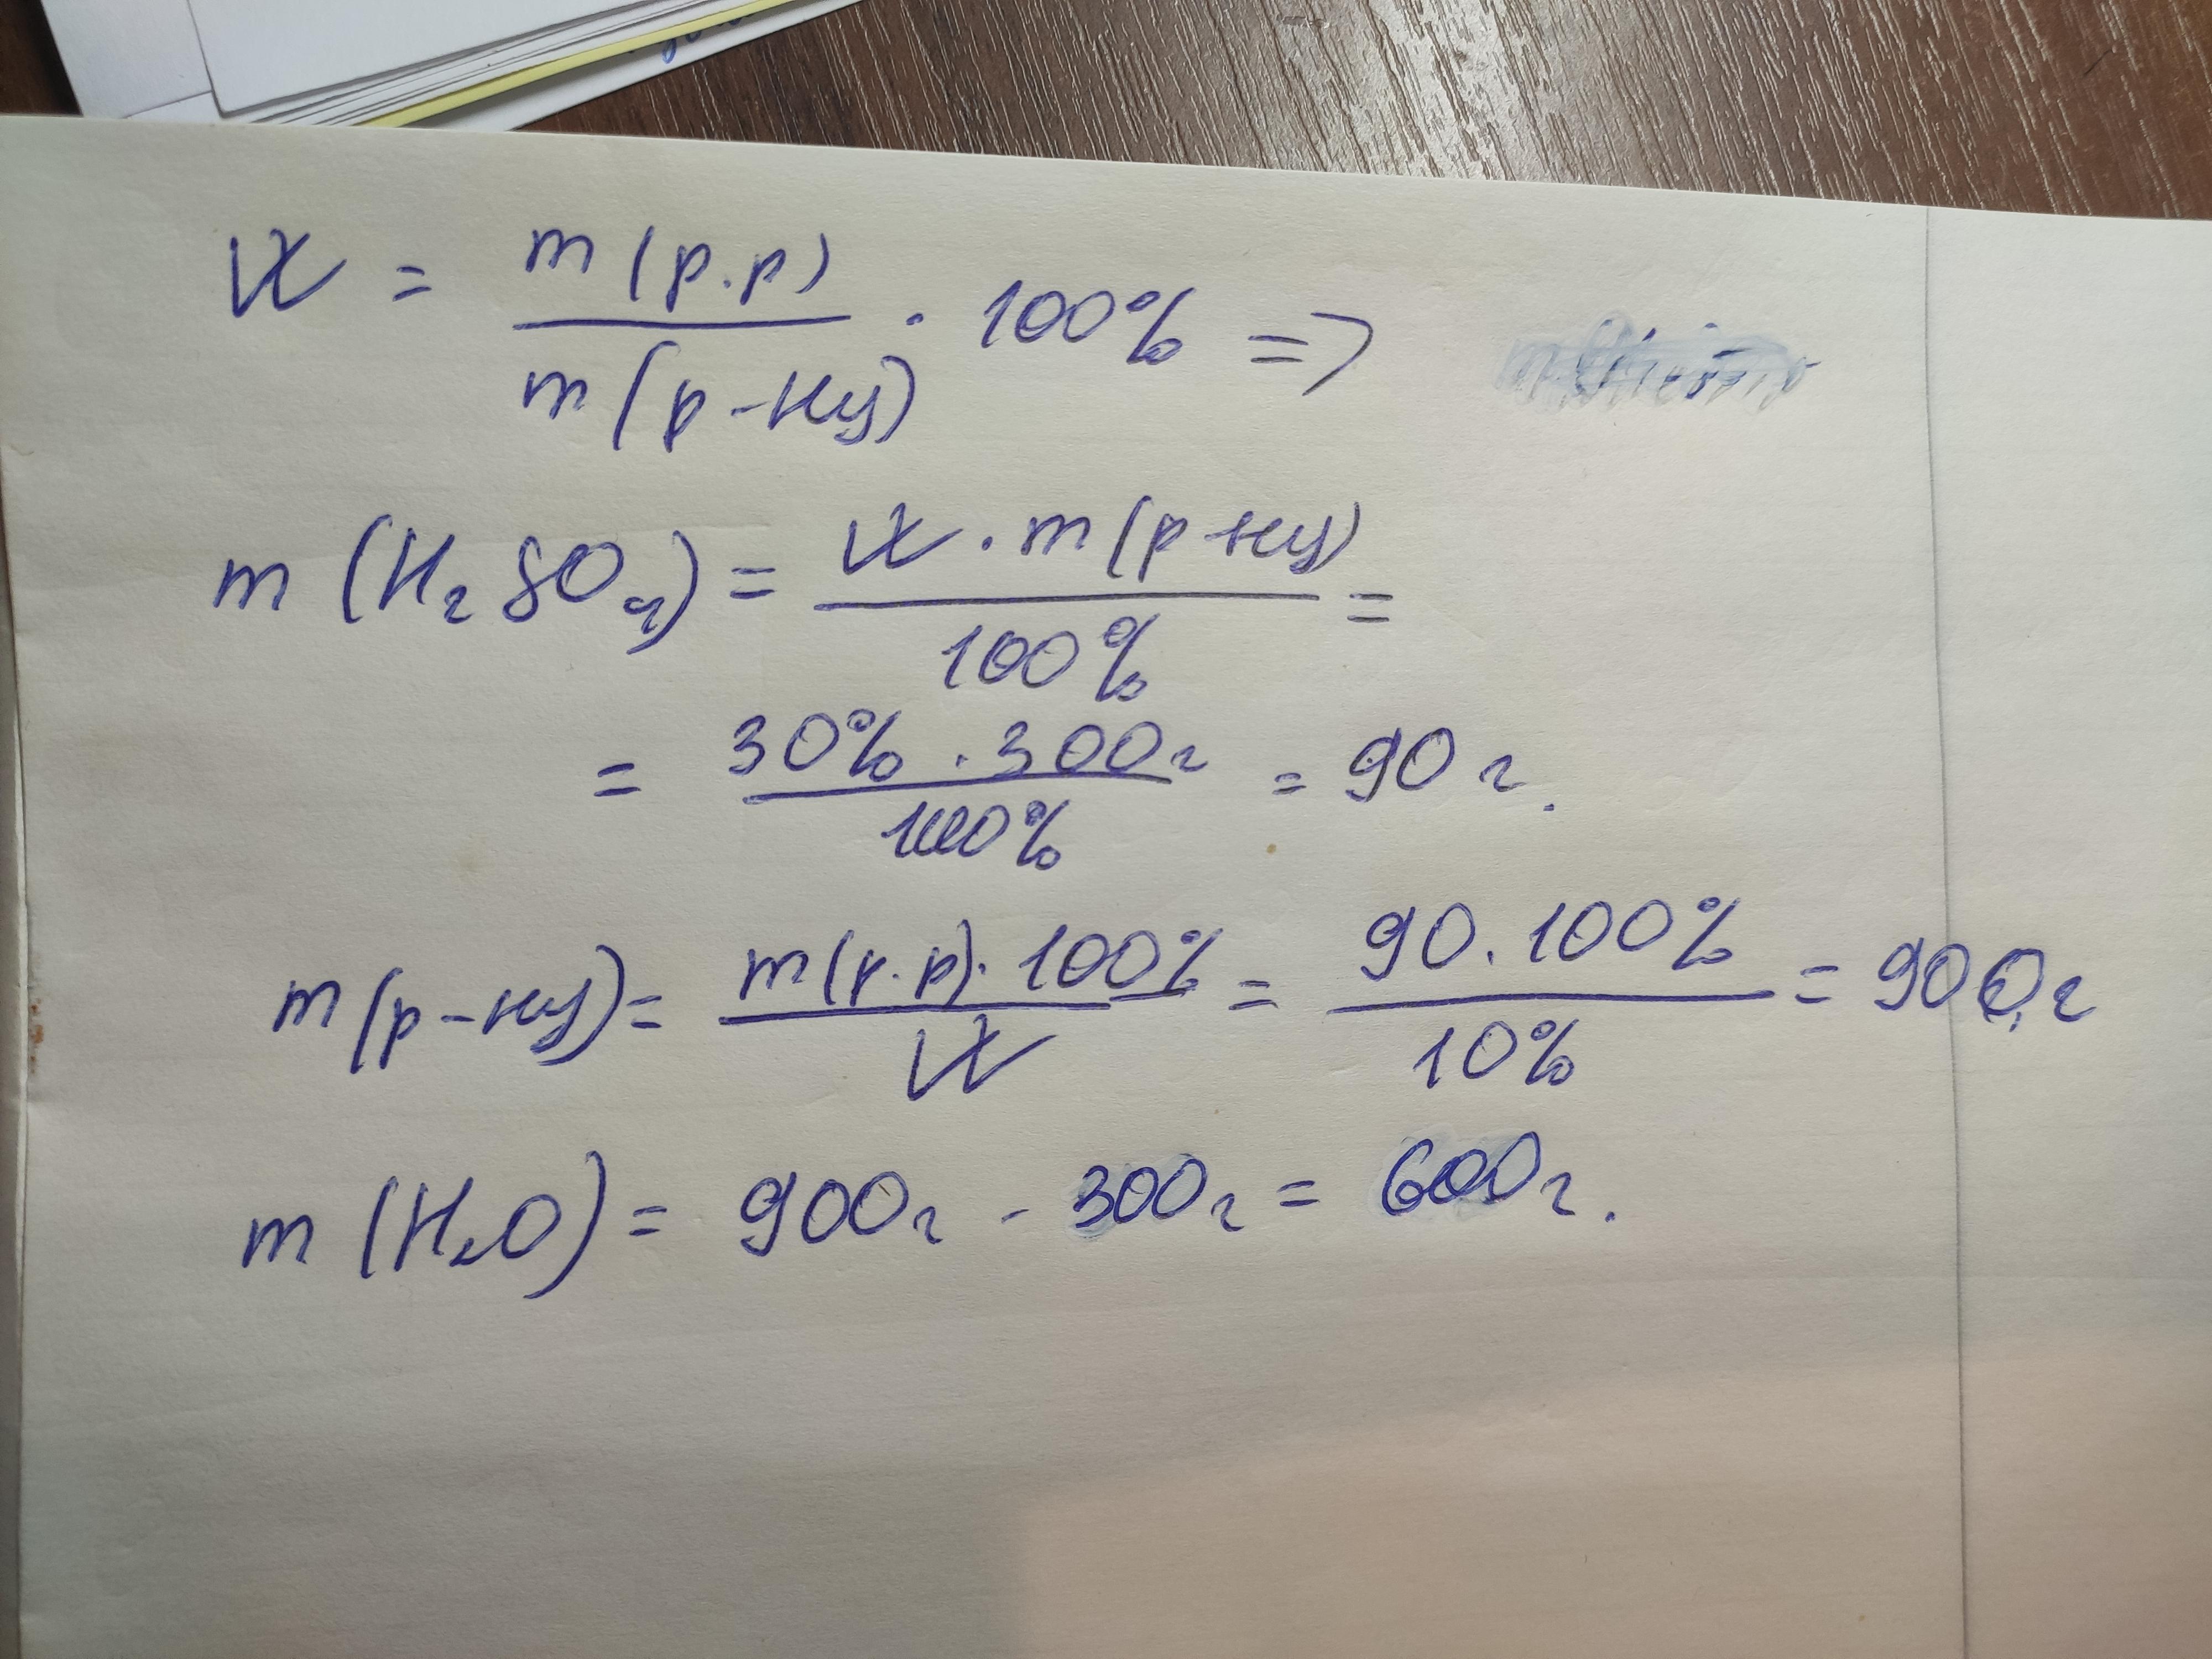 W = m(р.р) / m(р-ну) · 100% =>
m(H₂SO₄) = W · m(р-ну) / 100% =
= 30% · 300г / 100% = 90 г.
m(р-ну) = m(р.р) · 100% / W = 90 · 100% / 10% = 900г
m(H₂O) = 900г - 300г = 600г.